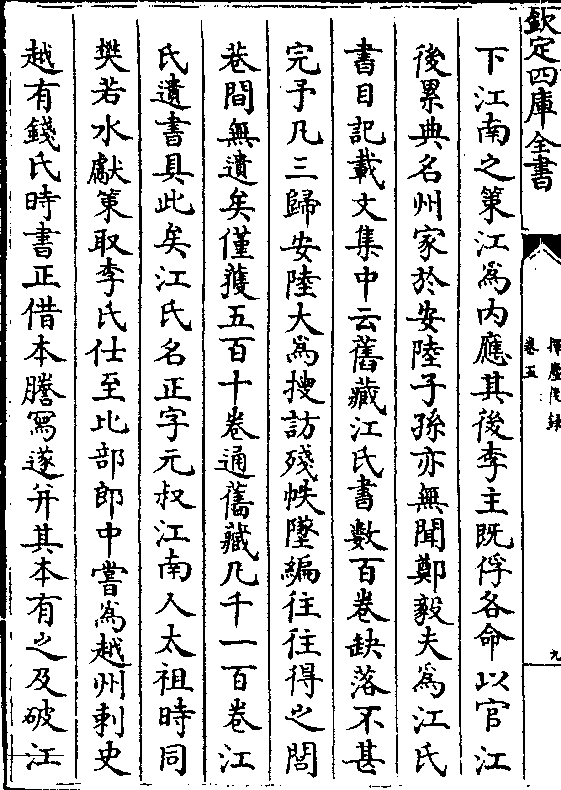 欽定四庫全書
揮麈後錄
卷五
九
下江南之策江爲内應其後李主既俘各命以官江
後累典名州家於安陸子孫亦無聞鄭毅夫爲江氏
書目記載文集中云舊藏江氏書數百卷缺落不甚
完予凡三歸安陸大爲搜訪殘帙墜編往往得之閭
巷間無遺矣僅獲五百十卷通舊藏凡千一百卷江
氏遺書具此矣江氏名正字元叔江南人太祖時同
樊若水獻策取李氏仕至比部郎中嘗爲越州刺史
越有錢氏時書正借本謄寫遂并其本有之及破江